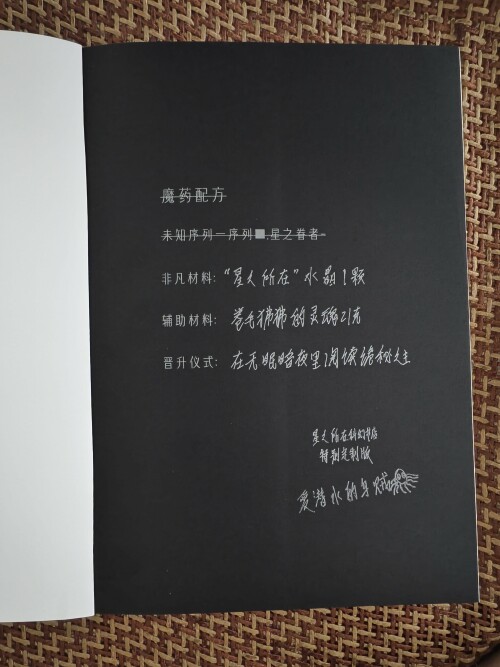 魔药配方
未知序列—序列■.星之眷者
非凡材料：“星之所在”水晶1颗
辅助材料：卷毛狒狒的灵魂21克
晋升仪式：在无眠暗夜里阅读诡秘人生
星之所在科幻书店
特别定制版
爱潜水的乌贼